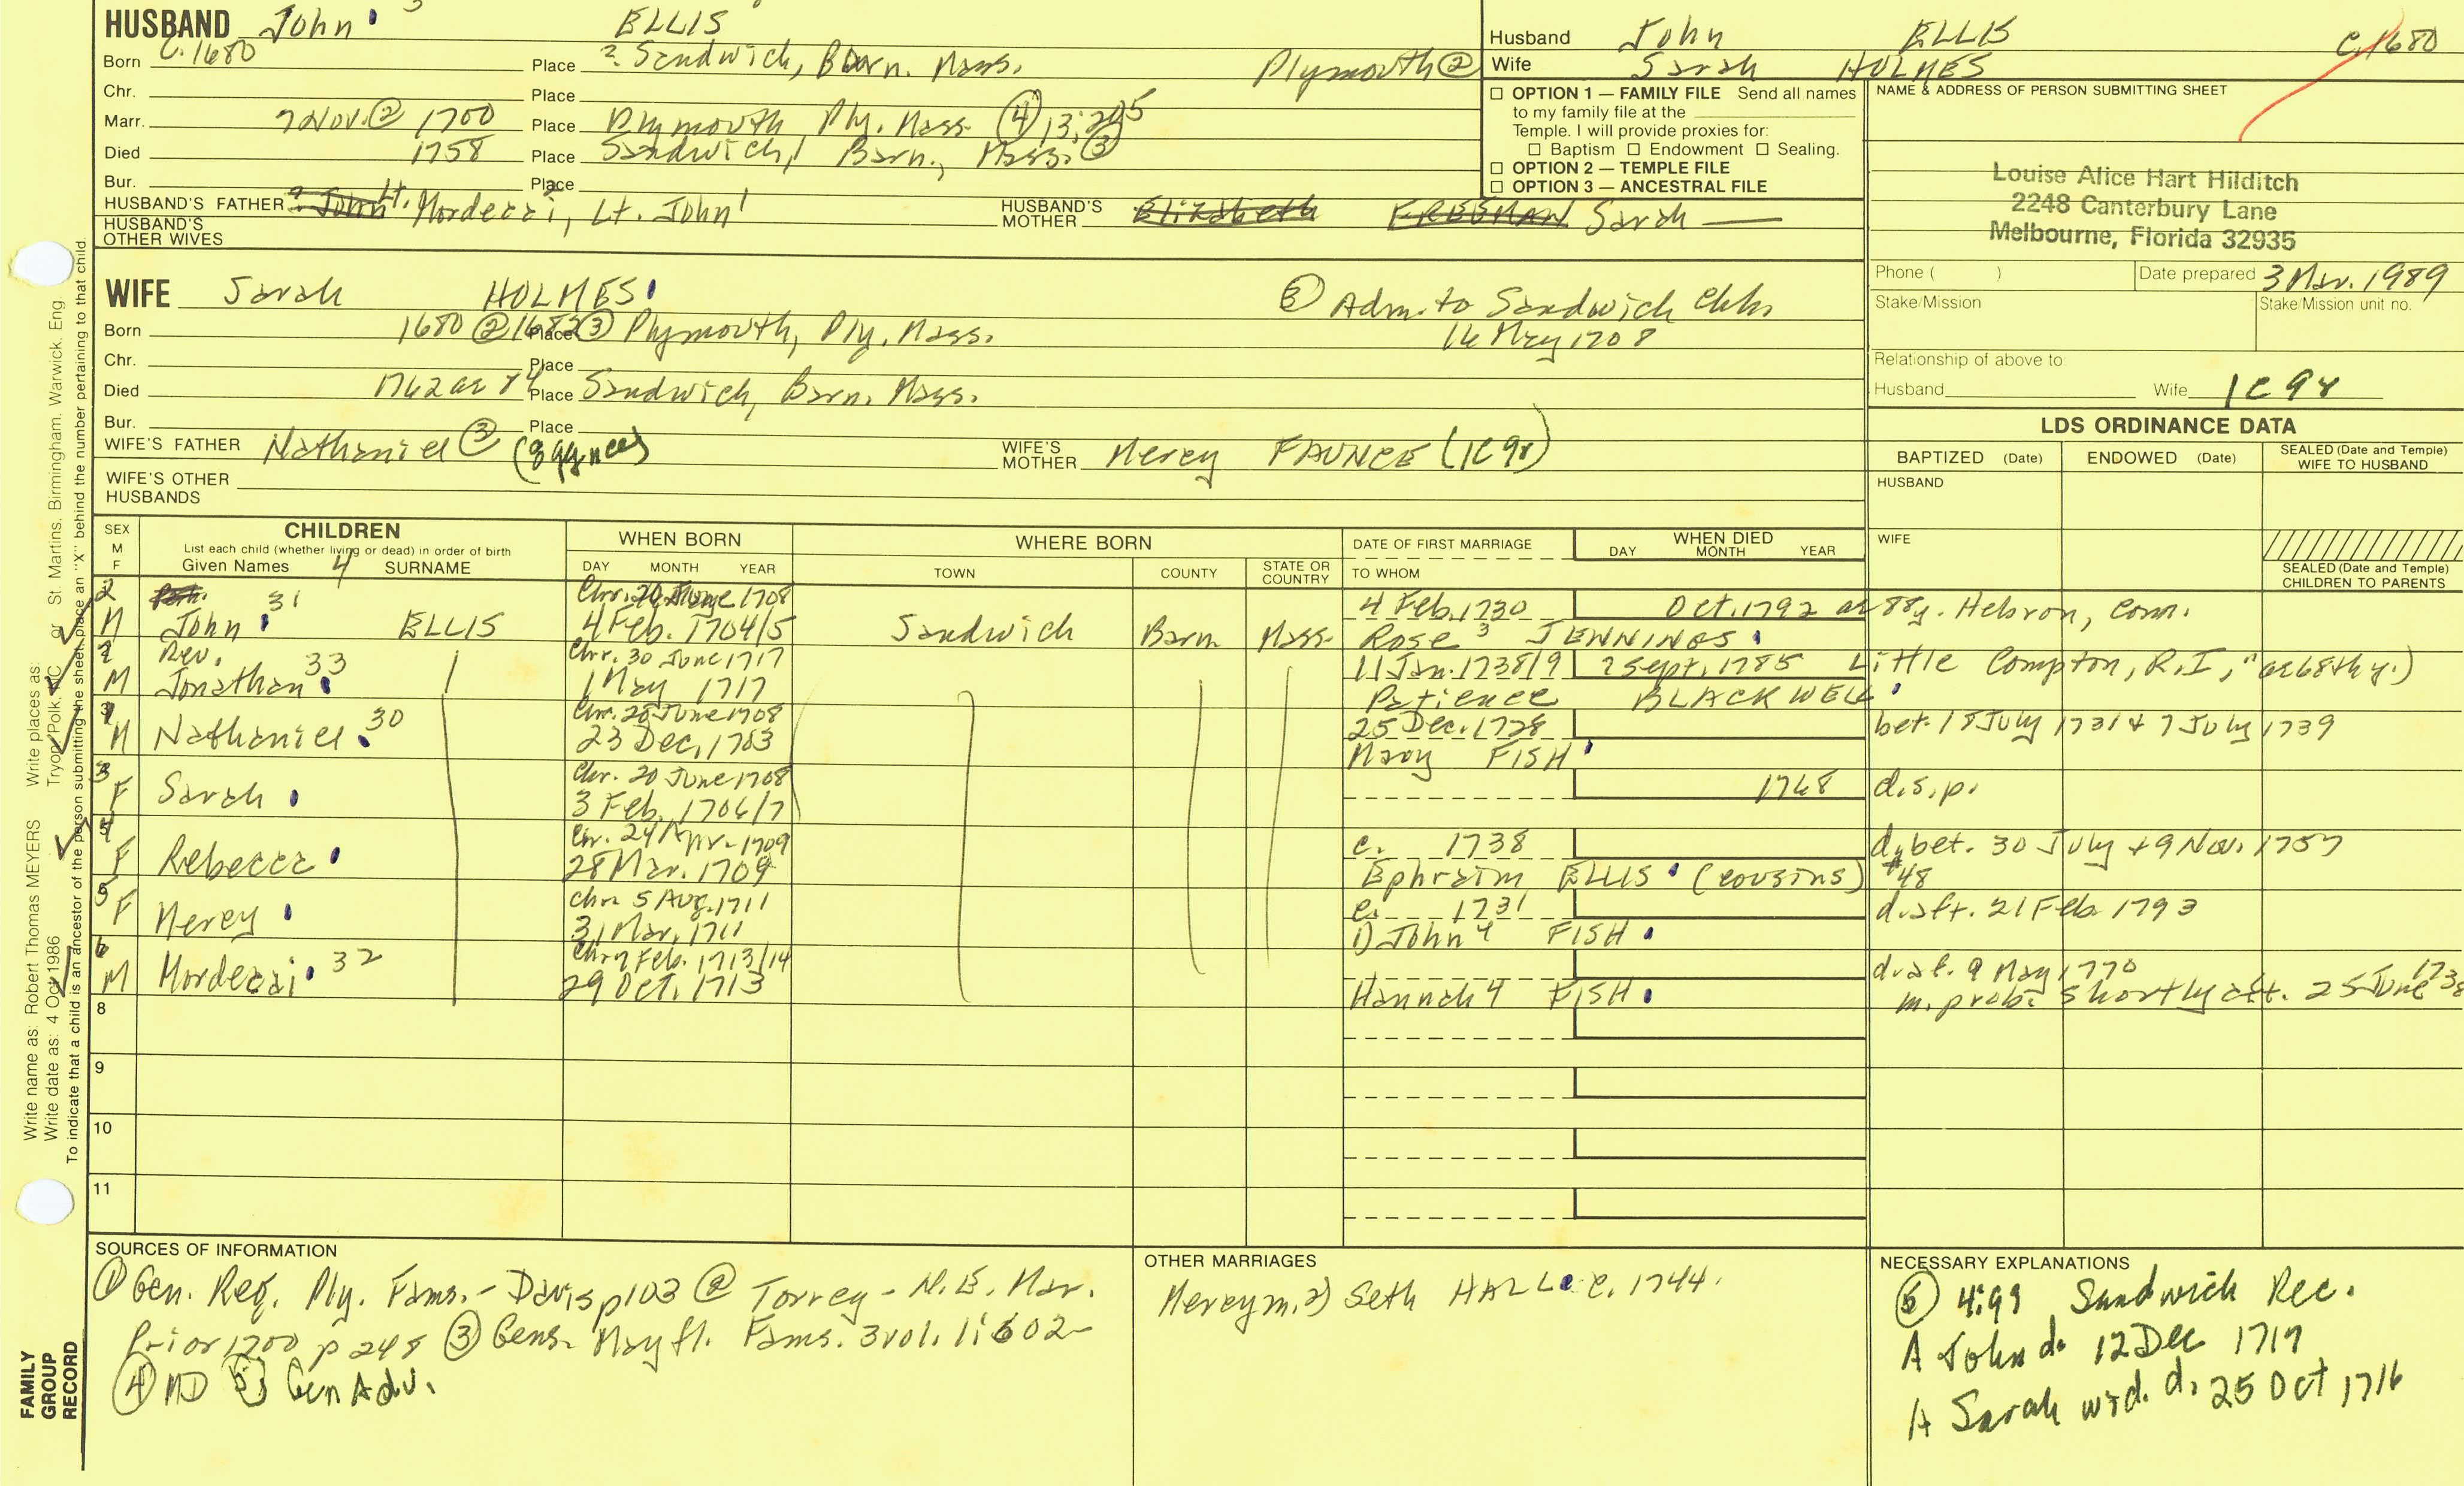 HUSBAND John 3 ELLIS
Born C. 1680 Place ? Sandwich, Barn. Mass. Plymouth ②
Chr. Place
Marr. 7 Nov. ② 1700 Place Plymouth, Ply. Mass ④ 13:205
Died 1758 Place Sandwich, Barn., Mass. ③
Bur. Place
HUSBAND'S FATHER ? John Lt. Mordecai, Lt. John¹ HUSBAND'S MOTHER Elizabeth FREEMAN Sarah
HUSBAND'S OTHER WIVES
Husband John ELLIS C. 1680
Wife Sarah HOLMES
☐ OPTION 1 — FAMILY FILE Send all names
to my family file at the
Temple. I will provide proxies for:
☐ Baptism ☐ Endowment ☐ Sealing.
☐ OPTION 2 — TEMPLE FILE
☐ OPTION 3 — ANCESTRAL FILE
NAME & ADDRESS OF PERSON SUBMITTING SHEET
Louise Alice Hart Hilditch
2248 Canterbury Lane
Melbourne, Florida 32935
Phone ( ) Date prepared 3 Mar. 1989
Stake/Mission Stake/Mission unit no.
Relationship of above to:
Husband Wife 1C 9r
WIFE Sarah HOLMES
③ Adm. to Sandwich Chh
16 May 1708
Born 1680 ② 1682 ③ Place Plymouth, Ply, Mass.
Chr. Place
Died 1762 ae 84 Place Sandwich, Barn. Mass.
Bur. Place
WIFE'S FATHER Nathaniel ③ WIFE'S MOTHER Mercy FAUNCE (1C 9r)
WIFE'S OTHER HUSBANDS
LDS ORDINANCE DATA
BAPTIZED (Date) ENDOWED (Date) SEALED (Date and Temple) WIFE TO HUSBAND
HUSBAND
WIFE
SEALED (Date and Temple) CHILDREN TO PARENTS
SEX M F CHILDREN WHEN BORN WHERE BORN DATE OF FIRST MARRIAGE WHEN DIED
List each child (whether living or dead) in order of birth
Given Names 4 SURNAME DAY MONTH YEAR TOWN COUNTY STATE OR COUNTRY TO WHOM DAY MONTH YEAR
2 31 Chr. 20 June 1708 4 Feb. 1730 Oct. 1792 ae 88y. Hebron, Conn.
M John ELLIS 4 Feb. 1704/5 Sandwich Barn Mass Rose 3 JENNINGS
Rev. 33 Chr. 30 June 1717 11 Jan. 1738/9 2 Sept. 1785 Little Compton, R.I, "ae 68th y.)
M Jonathan 1 May 1717 Patience BLACKWELL
30 Chr. 20 June 1708 25 Dec. 1728 bet. 18 July 1731 & 7 July 1739
M Nathaniel 23 Dec. 1703 Mary FISH
3 Chr. 20 June 1708 1768 d.s.p.
F Sarah 3 Feb. 1706/7
4 Chr. 24 Apr. 1709 c. 1738 d. bet. 30 July + 9 Nov. 1757
F Rebecca 28 Mar. 1709 Ephraim ELLIS (cousins) #48
5 Chr. 5 Aug. 1711 c. 1731 d. aft. 21 Feb. 1793
F Mercy 31 Mar. 1711 1) John 4 FISH
6 32 Chr. 7 Feb. 1713/14 9 May 1770
M Mordecai 29 Oct. 1713 Hannah 4 FISH m. prob. shortly aft. 25 June 1738
8
9
10
11
SOURCES OF INFORMATION
① Gen. Reg. Ply. Fams. - Davis p 103 ② Torrey - N.E. Mar.
Prior 1700 p 248 ③ Gens. Mayfl. Fams. 3 vol. 1:602-
④ MD ⑤ Gen Adv.
OTHER MARRIAGES
Mercy m. 2) Seth HALL c. 1744.
NECESSARY EXPLANATIONS
⑤ 4:99 Sandwich Rec.
A John d. 12 Dec 1719
A Sarah wid. d. 25 Oct 1716
Write name as: Robert Thomas MEYERS Write places as: Tryon, Polk, NC or St. Martins, Birmingham, Warwick, Eng
Write date as: 4 Oct 1986
To indicate that a child is an ancestor of the person submitting the sheet, place an "X" behind the number pertaining to that child.
FAMILY
GROUP
RECORD